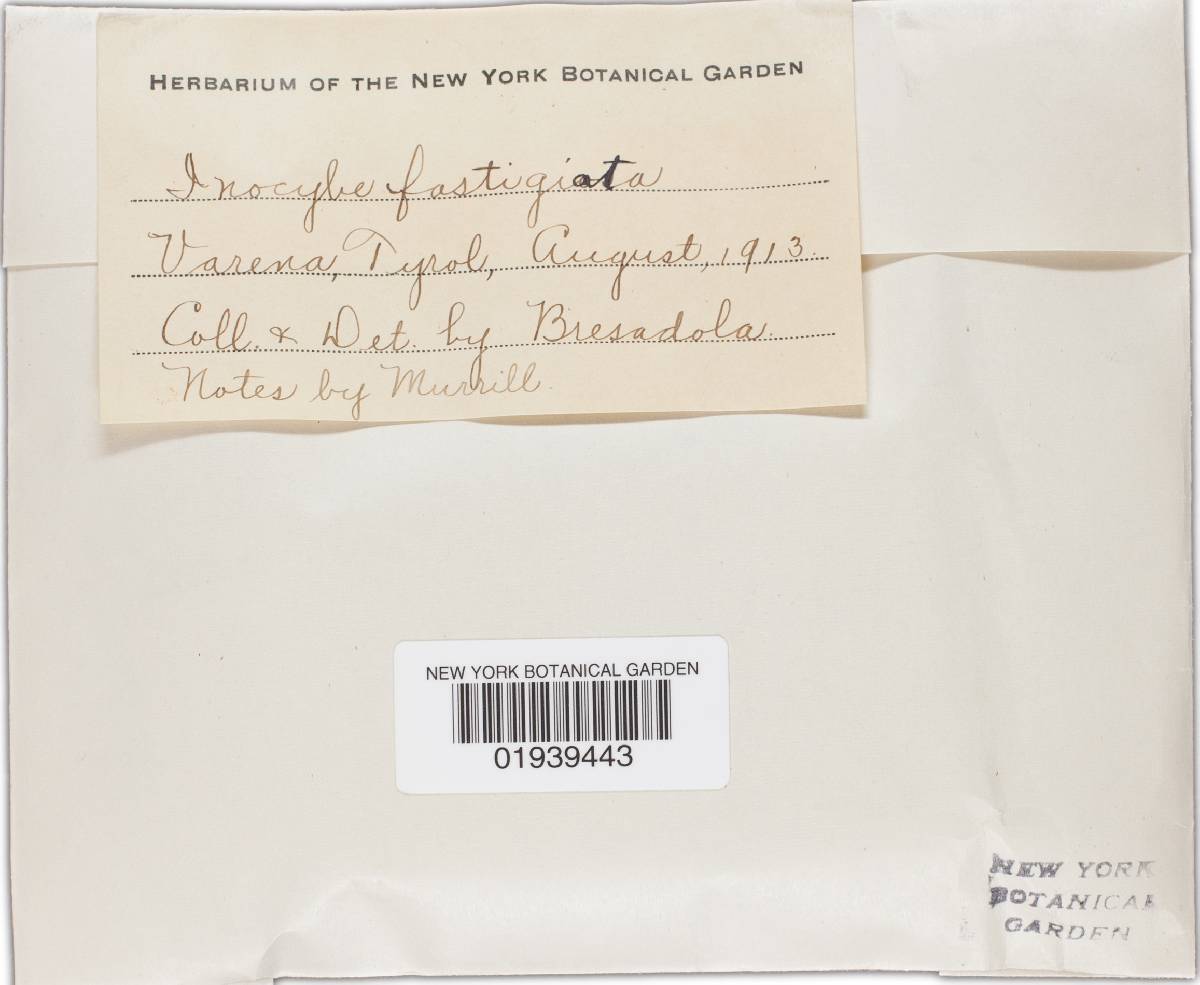 HERBARIUM OF THE NEW YORK BOTANICAL GARDEN
Inocybe fastigiata
Varena, Tyrol, August, 1913.
Coll. & Det. by Bresadola.
Notes by Murrill.
NEW YORK BOTANICAL GARDEN
01939443
NEW YORK
BOTANICAL
GARDEN